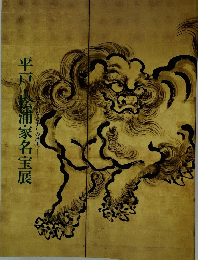 平戸・松浦家名宝展